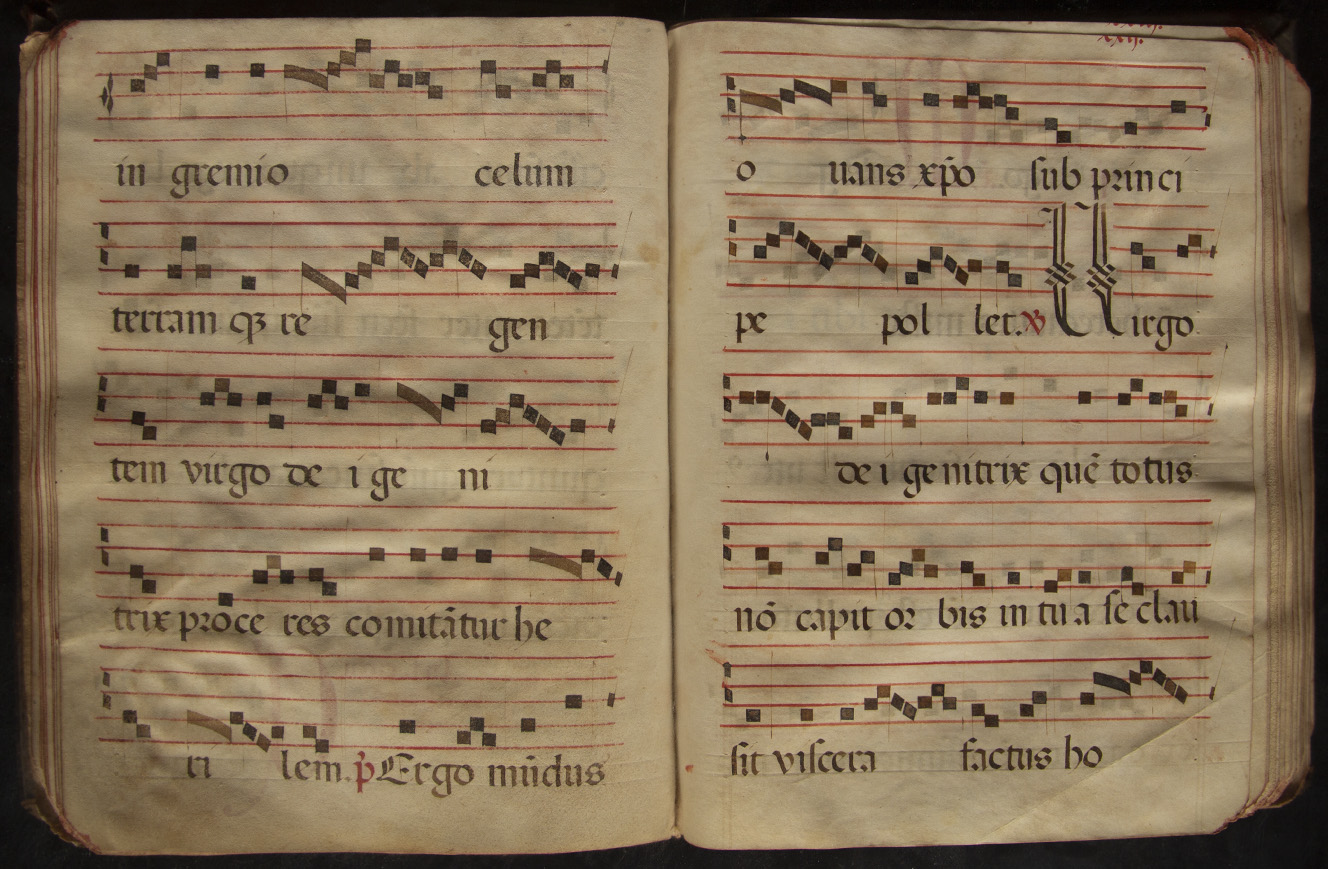 in gremio celum
terram qȝ re gen
tem virgo de i ge ni
trix proce res comitātur he
ri lem. p̄ Ergo mūdus
xxij.
o uans xp̄o sub princi
pe pol let. ꝟ Virgo
de i genitrix quē totus
nō capit or bis in tu a se clau
sit viscera factus ho